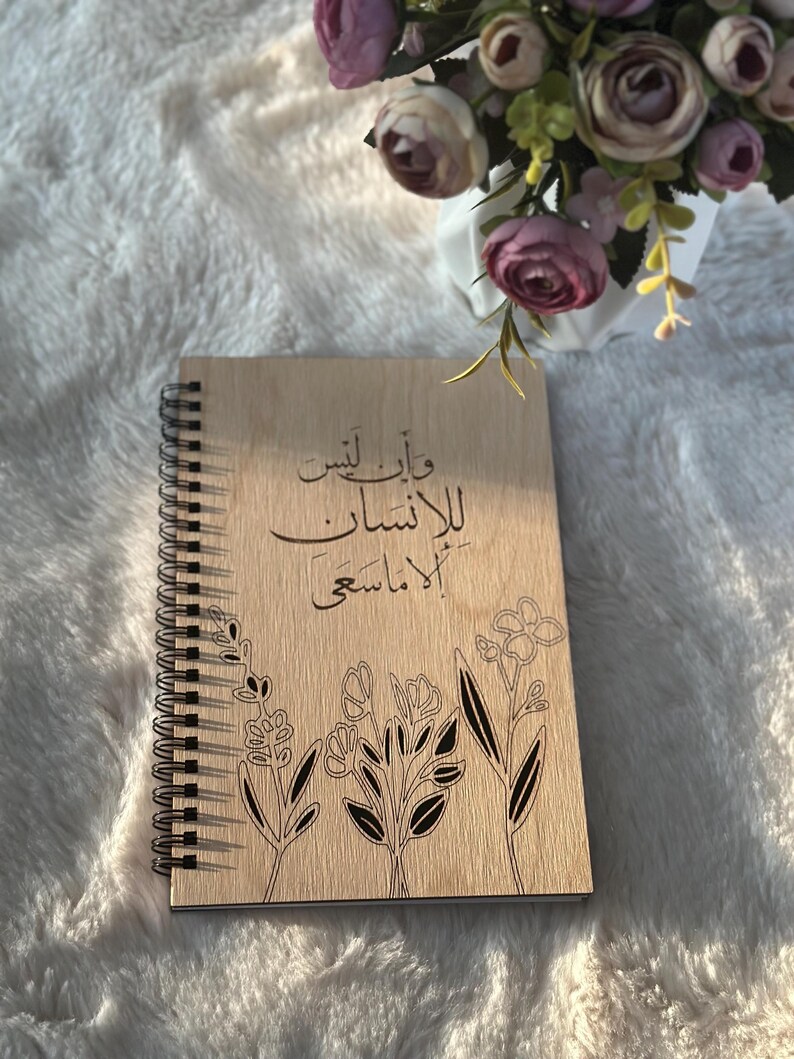 وَأَن لَيْسَ
لِلإِنْسَانِ
إِلَّا مَا سَعَىٰ